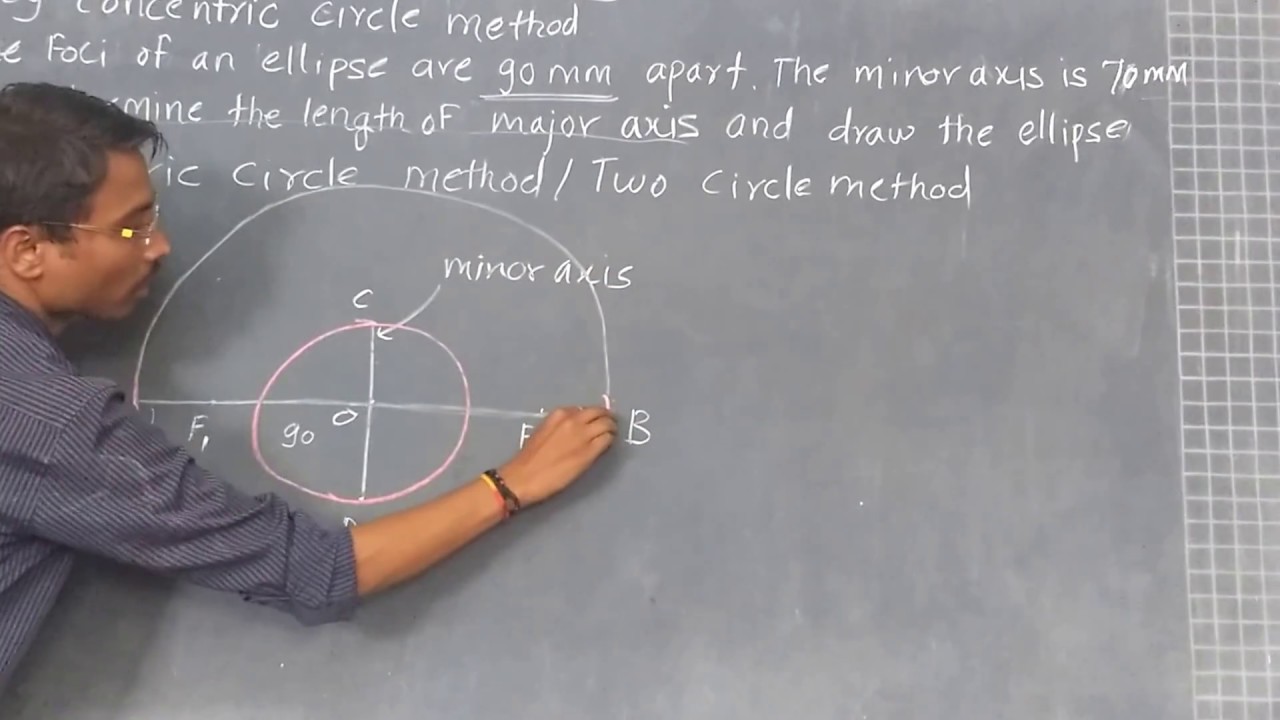 concentric circle method
Foci of an ellipse are 90mm apart. The minor axis is 70mm
the length of major axis and draw the ellipse
circle method / Two circle method
minor axis
C
O
F1
90
F
B